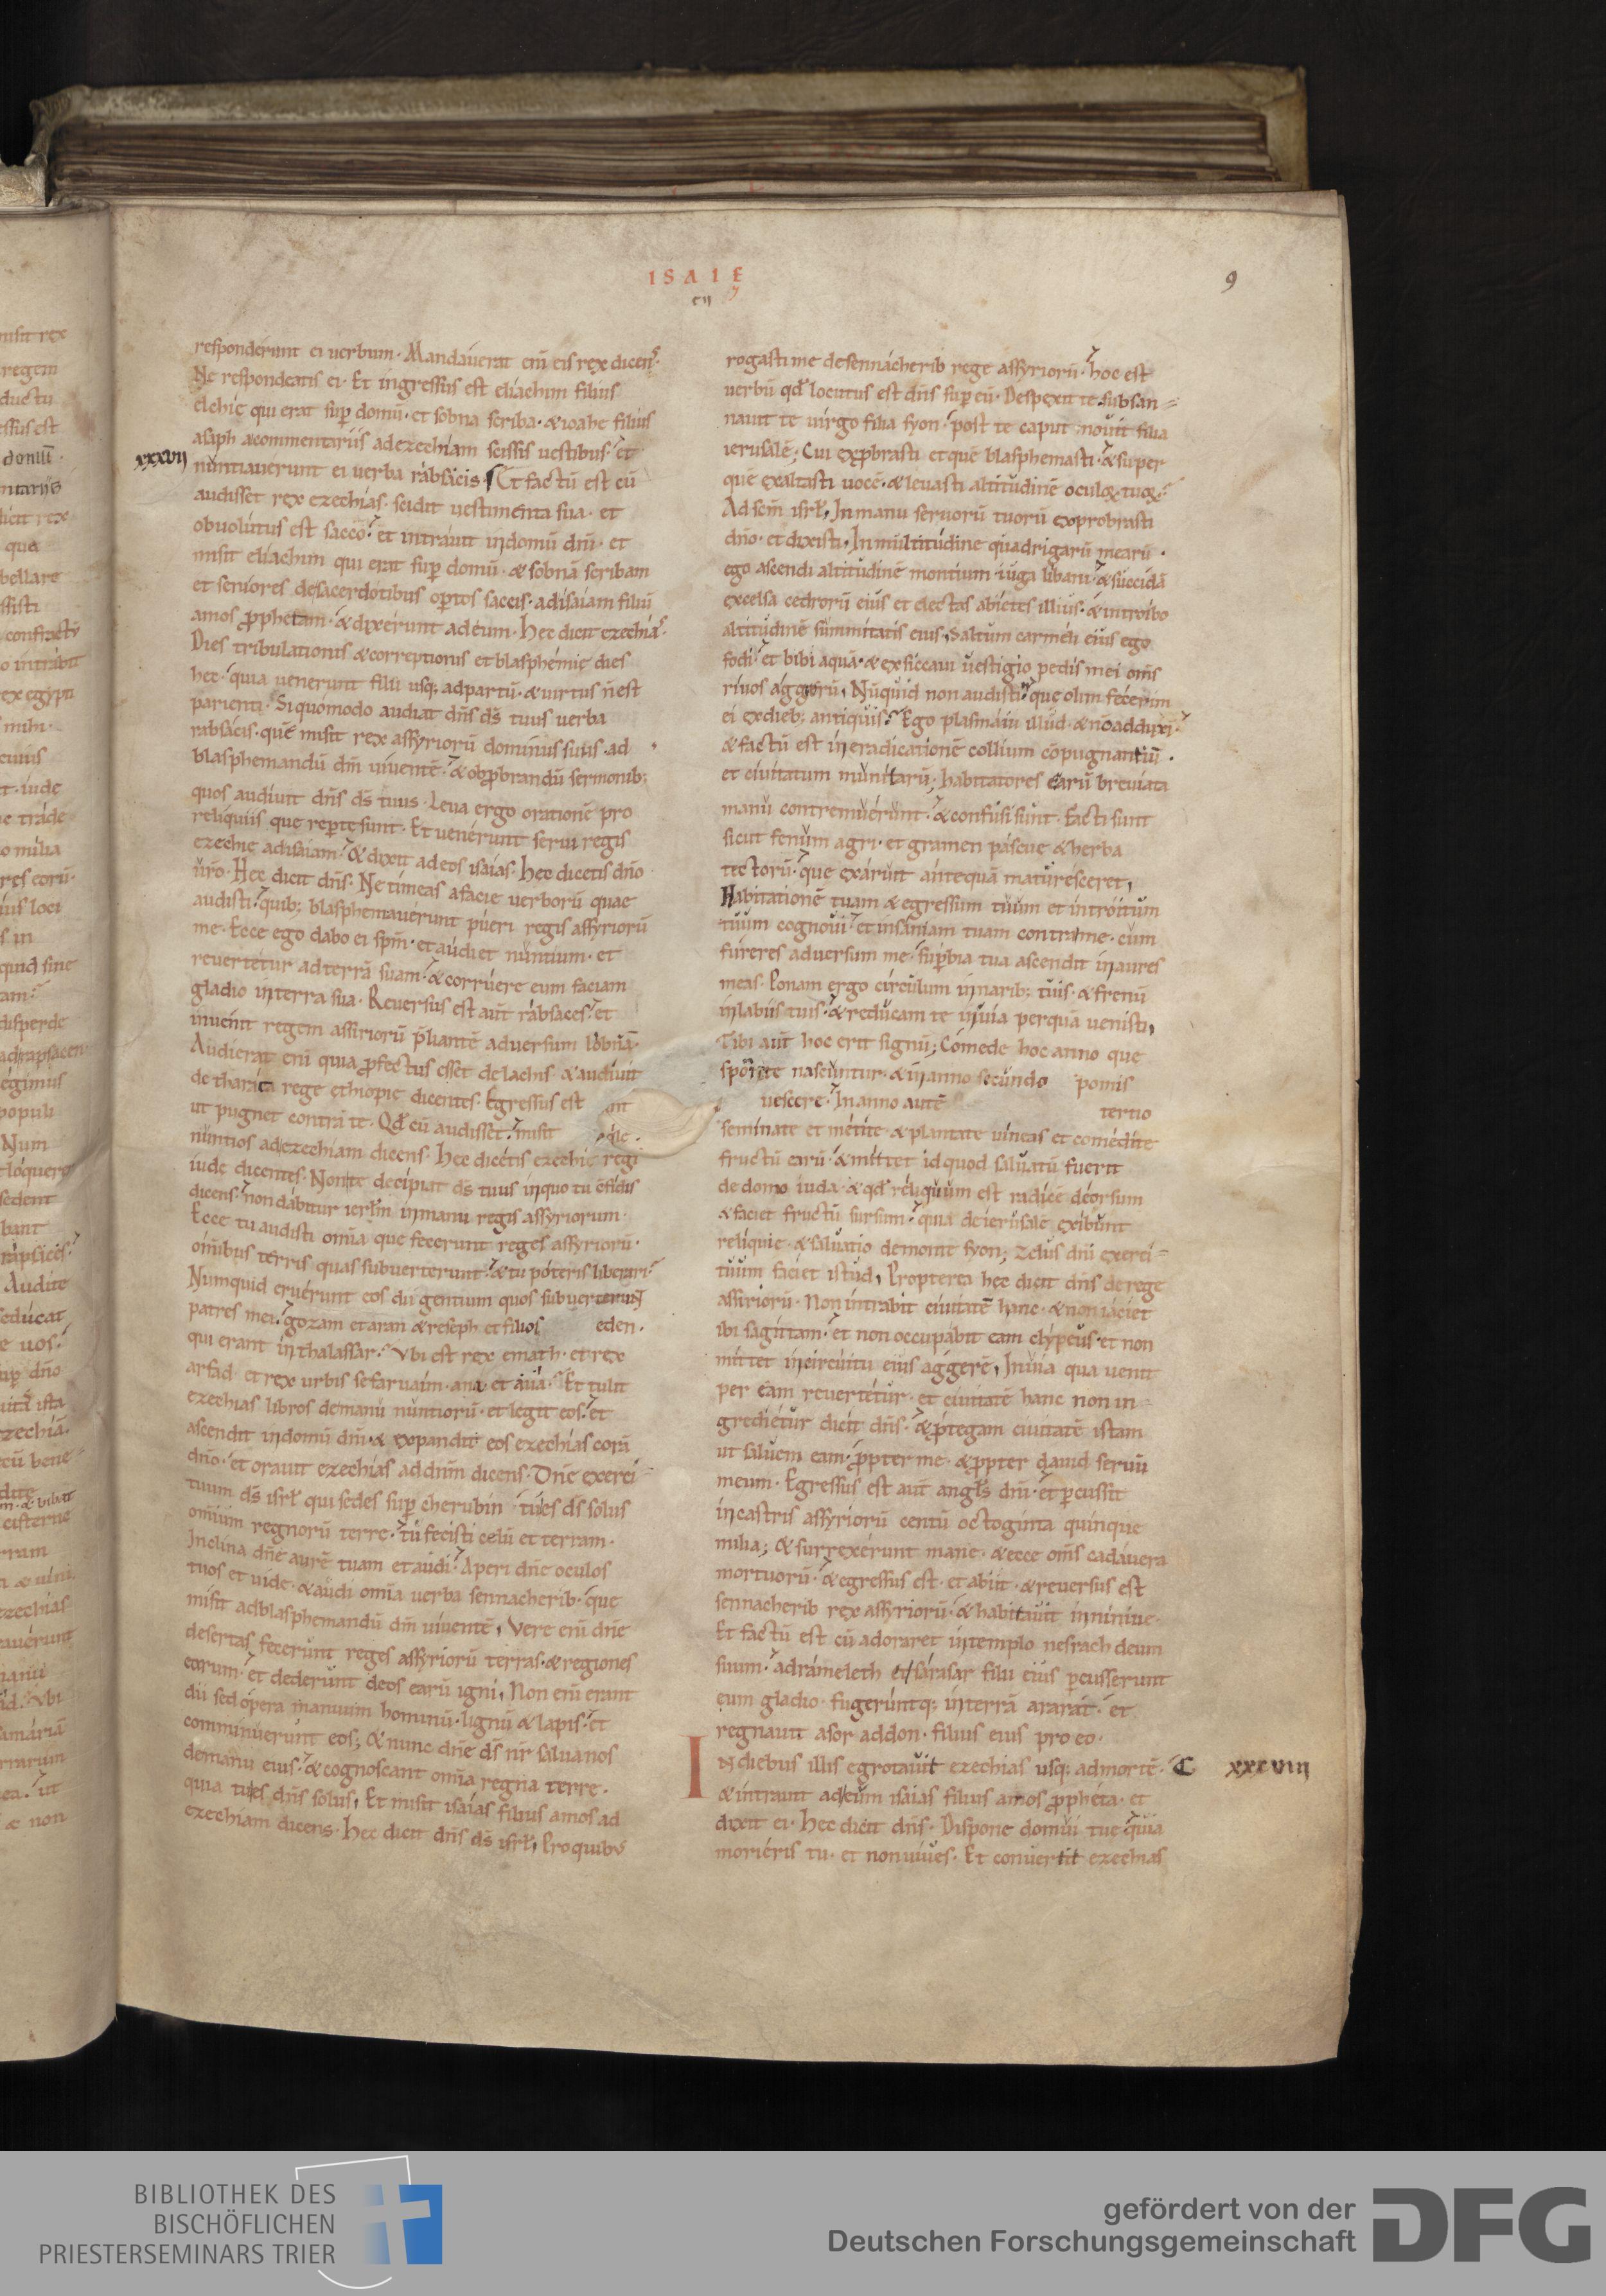 ISAIE
cii
9
responderunt ei uerbum. Mandauerat enī eis rex dicens.
Ne respondeatis ei. Et ingressus est eliachim filius
elchię qui erat sup domū. et sobna scriba. & ioahe filius
asaph acommentariis adezechiam scissis uestibus. et
xxxvii
nuntiauerunt ei uerba rabsacis. Et factū est cū
audisset rex ezechias. scidit uestimenta sua. et
obuolutus est sacco. et intrauit indomū dn̄i. et
misit eliachim qui erat sup domū. & sobnā scribam
et seniores desacerdotibus optos saccis. adisaiam filiū
amos pphetam. & dixerunt adeum. Hec dicit ezechias.
Dies tribulationis & correptionis et blasphemię dies
hec. quia uenerunt filii usq; adpartū. & uirtus n̄ est
parienti. Si quomodo audiat dn̄s ds̄ tuus uerba
rabsacis. quē misit rex assyriorū dominus suus. ad
blasphemandū dm̄ uiuentē. & obprobrandū sermonib;
quos audiuit dn̄s ds̄ tuus. Leua ergo orationē pro
reliquiis que repte sunt. Et uenerunt serui regis
ezechię adisaiam. & dixit ad eos isaias. Hec dicetis dn̄o
uro. Hec dicit dn̄s. Ne timeas afacie uerborū quae
audisti. quib; blasphemauerunt pueri regis assyriorū
me. Ecce ego dabo ei spm̄. et audiet nuntium. et
reuertetur adterrā suam. & corruere eum faciam
gladio interra sua. Reuersus est aut̄ rabsaces. et
inuenit regem assiriorū p̄liantē aduersum lobnā.
Audierat enī quia pfectus esset delachis. & audiuit
de tharaca rege ęthiopię dicentes. Egressus est
ut pugnet contra te. Qd̄ cū audisset. misit
nuntios adezechiam dicens. Hec dicetis ezechię regi
iude dicentes. Non te decipiat ds̄ tuus inquo tu cfidis
dicens. non dabitur ierlm̄ inmanu regis assyriorum.
Ecce tu audisti omīa que fecerunt reges assyriorū.
omībus terris quas subuerterunt. & tu poteris liberari.
Numquid eruerunt eos dii gentium quos subuerterunt
patres mei. gozam et aran & reseph et filios eden.
qui erant inthalassar. Vbi est rex emath. et rex
arfad. et rex urbis sefaruaim. ana. et aua. Et tulit
ezechias libros demanu nuntiorū. et legit eos. et
ascendit indomū dn̄i. & expandit eos ezechias corā
dn̄o. et orauit ezechias ad dnm̄ dicens. Dn̄e exerci=
tuum ds̄ isrl̄ qui sedes sup cherubin. tu es ds̄ solus
omīum regnorū terre. tu fecisti celū et terram.
Inclina dn̄e aurē tuam et audi. Aperi dn̄e oculos
tuos et uide. & audi omīa uerba sennacherib. que
misit adblasphemandū dm̄ uiuentē, Vere enī dn̄e
desertas fecerunt reges assyriorū terras. & regiones
earum. et dederunt deos earū igni, Non enī erant
dii sed opera manuum hominū. lignū & lapis. et
comminuerunt eos; & nunc dn̄e ds̄ nr̄ salua nos
demanu eius. & cognoscant omīa regna terre.
quia tu es dn̄s solus, Et misit isaias filius amos ad
ezechiam dicens. Hec dicit dn̄s ds̄ isrl̄, Pro quibus
rogasti me desennacherib rege assyriorū. hoc est
uerbū qd̄ locutus est dn̄s sup eū. Despexit te. subsan=
nauit te uirgo filia syon. post te caput mouit filia
ierusalē; Cui exprbrasti et quē blasphemasti. & super
quē exaltasti uocē. & leuasti altitudinē oculoꝝ tuoꝝ.
Ad scm̄ isrl̄, In manu seruorū tuorū exprobrasti
dn̄o. et dixisti, In multitudine quadrigarū mearū.
ego ascendi altitudinē montium iuga libani. & succidā
excelsa cedrorū eius et electas abietes illius. & introibo
altitudinē summitatis eius, Saltum carmeli eius ego
fodi. et bibi aquā. & exsiccaui uestigio pedis mei oms̄
riuos aggerū, Nūquid non audisti. que olim fecerim
ei exdieb; antiquis. Ego plasmaui illud. & nc̄ adduxi.
& factū est ineradicationē collium cōpugnantiū.
et ciuitatum munitarū; habitatores earū breuiata
manu contremuerunt. & confusi sunt. Facti sunt
sicut fenum agri. et gramen pascue & herba
tectorū. que exaruit antequā maturesceret,
Habitationē tuam & egressum tuum et introitum
tuum cognoui. et insaniam tuam contra me. cum
fureres aduersum me. supbia tua ascendit inaures
meas. Ponam ergo circulum innarib; tuis. & frenū
inlabiis tuis. & reducam te inuia perquā uenisti,
Tibi aut̄ hoc erit signū; Comede hoc anno que
sponte nascuntur. & inanno secundo pomis
uescere. In anno autē tertio
seminate et metite. & plantate uineas et comedite
fructū earū. & mittet id quod saluatū fuerit
de domo iuda. & qd̄ reliquum est radicē deorsum
& faciet fructū sursum. quia deierusalē exibunt
reliquie. & saluatio demonte syon; Zelus dn̄i exerci=
tuum faciet istud, Propterea hec dicit dn̄s de rege
assiriorū. Non intrabit ciuitatē hanc. & non iaciet
ibi sagittam. et non occupabit eam clypeus. et non
mittet incircuitu eius aggerē, Inuia qua uenit
per eam reuertetur. et ciuitatē hanc non in=
gredietur dicit dn̄s. & ptegam ciuitatē istam
ut saluem eam. ppter me. & ppter dauid seruū
meum. Egressus est aut̄ angls̄ dn̄i. et pcussit
incastris assyriorū centū octoginta quinque
milia; & surrexerunt mane. & ecce oms̄ cadauera
mortuorū. & egressus est. et abiit. & reuersus est
sennacherib rex assyriorū. & habitauit inniniue.
Et factū est cū adoraret intemplo nesrach deum
suum. adrameleth et sarasar filii eius pcusserunt
eum gladio. fugeruntq; interrā ararat. et
regnauit asor addon. filius eius pro eo.
In diebus illis egrotauit ezechias usq; admortē. C xxxviii
& intrauit adeum isaias filius amos ppheta. et
dixit ei. Hec dicit dn̄s. Dispone domui tue quia
morieris tu. et non uiues. Et conuertit ezechias
BIBLIOTHEK DES
BISCHÖFLICHEN
PRIESTERSEMINARS TRIER
gefördert von der
Deutschen Forschungsgemeinschaft
DFG